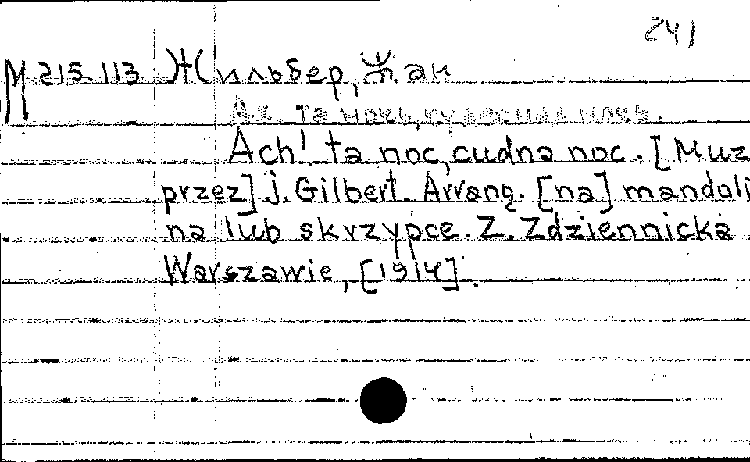 241
М 215.113 Жильбер, Жан
Ах та ночь, чудесная ночь.
Ach! ta noc, cudna noc. [Muz
przez] J. Gilbert. Arrang. [na] mandoli
na lub skrzypce. Z. Zdziennicka
Warszawie, [1914].